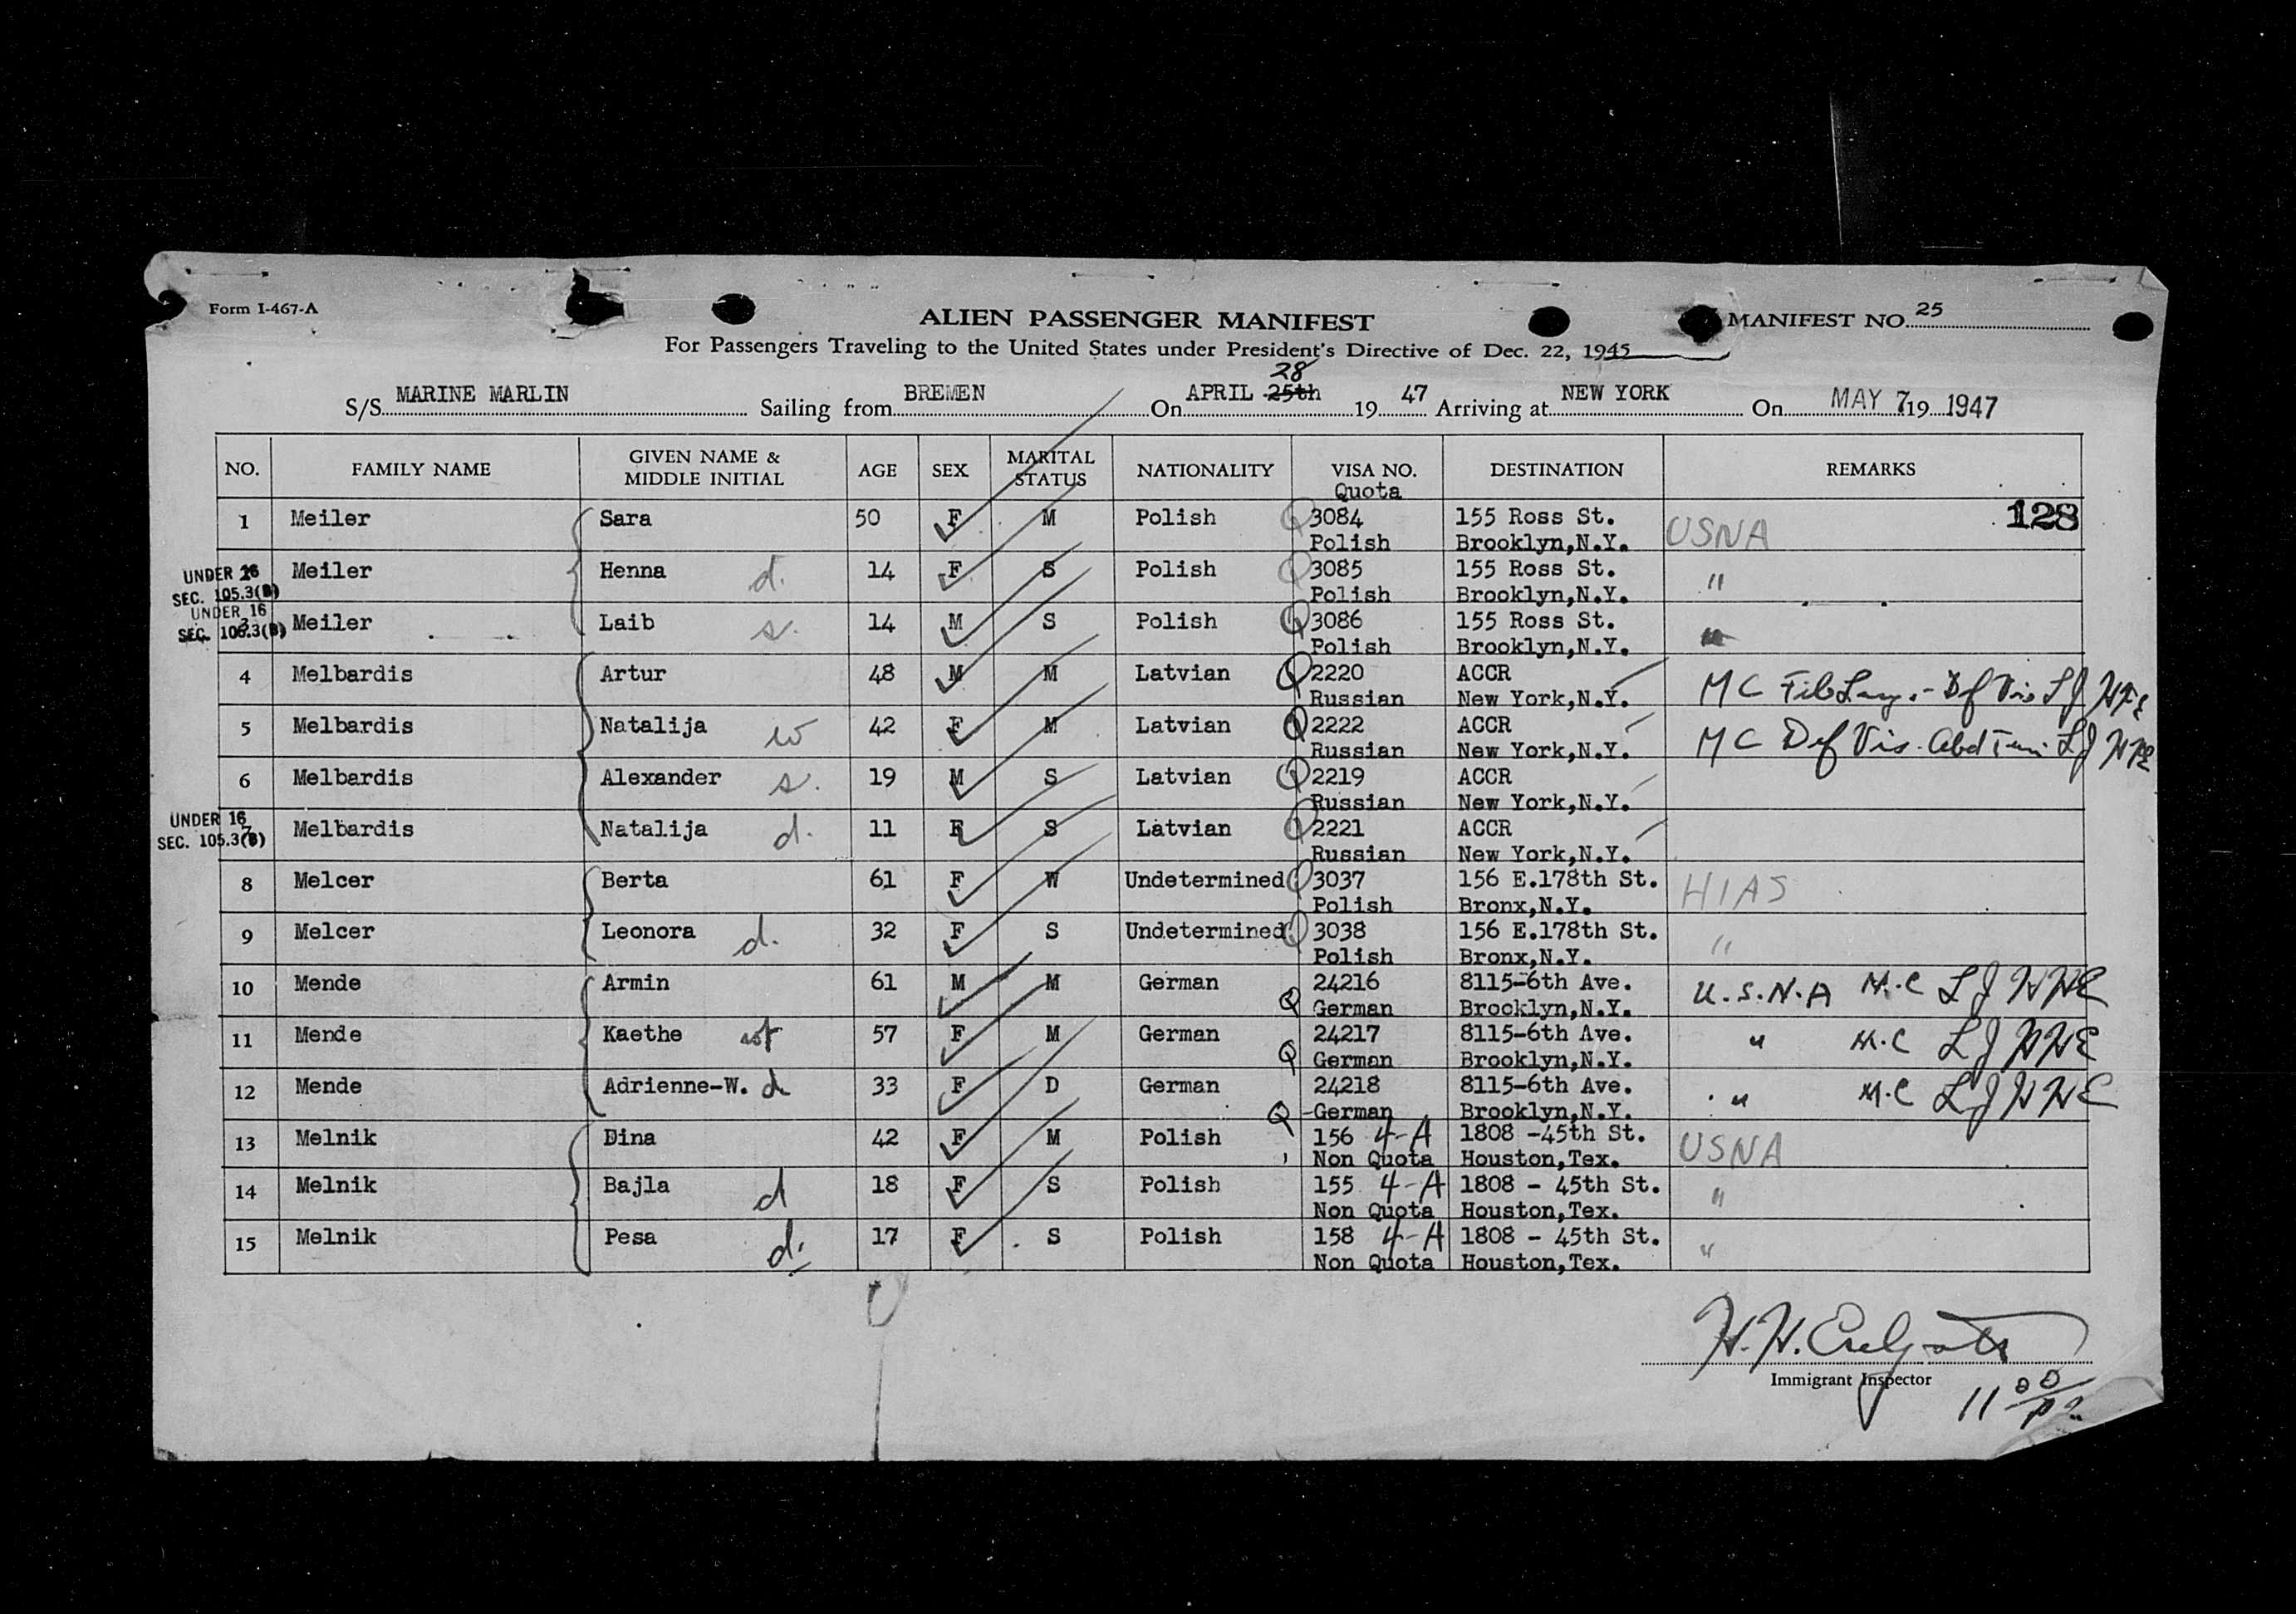 Form I-467-A
ALIEN PASSENGER MANIFEST
MANIFEST NO. 25
For Passengers Traveling to the United States under President's Directive of Dec. 22, 1945
28
S/S MARINE MARLIN Sailing from BREMEN On APRIL 25th 19 47 Arriving at NEW YORK On MAY 7 19 1947
NO. FAMILY NAME GIVEN NAME & MIDDLE INITIAL AGE SEX MARITAL STATUS NATIONALITY VISA NO. Quota DESTINATION REMARKS
128
1 Meiler Sara 50 F M Polish Q 3084 155 Ross St. USNA
Polish Brooklyn,N.Y.
UNDER 16 2 Meiler Henna d. 14 F S Polish Q 3085 155 Ross St. "
SEC. 105.3(B) Polish Brooklyn,N.Y.
UNDER 16 3 Meiler Laib s. 14 M S Polish Q 3086 155 Ross St. "
SEC. 105.3(B) Polish Brooklyn,N.Y.
4 Melbardis Artur 48 M M Latvian Q 2220 ACCR MC Def Vis LJ HHE
Russian New York,N.Y.
5 Melbardis Natalija w 42 F M Latvian Q 2222 ACCR MC Def Vis. LJ HHE
Russian New York,N.Y.
6 Melbardis Alexander s. 19 M S Latvian Q 2219 ACCR
Russian New York,N.Y.
UNDER 16 7 Melbardis Natalija d. 11 F S Latvian Q 2221 ACCR
SEC. 105.3(B) Russian New York,N.Y.
8 Melcer Berta 61 F W Undetermined Q 3037 156 E.178th St. HIAS
Polish Bronx,N.Y.
9 Melcer Leonora d. 32 F S Undetermined Q 3038 156 E.178th St. "
Polish Bronx,N.Y.
10 Mende Armin 61 M M German 24216 8115-6th Ave. U.S.N.A M.C LJ HHE
Q German Brooklyn,N.Y.
11 Mende Kaethe wf 57 F M German 24217 8115-6th Ave. " M.C LJ HHE
Q German Brooklyn,N.Y.
12 Mende Adrienne-W. d 33 F D German 24218 8115-6th Ave. " M.C LJ HHE
Q German Brooklyn,N.Y.
13 Melnik Dina 42 F M Polish 156 4-A 1808 -45th St. USNA
Non Quota Houston,Tex.
14 Melnik Bajla d 18 F S Polish 155 4-A 1808 - 45th St. "
Non Quota Houston,Tex.
15 Melnik Pesa d. 17 F S Polish 158 4-A 1808 - 45th St. "
Non Quota Houston,Tex.
H.H.
Immigrant Inspector
11 00